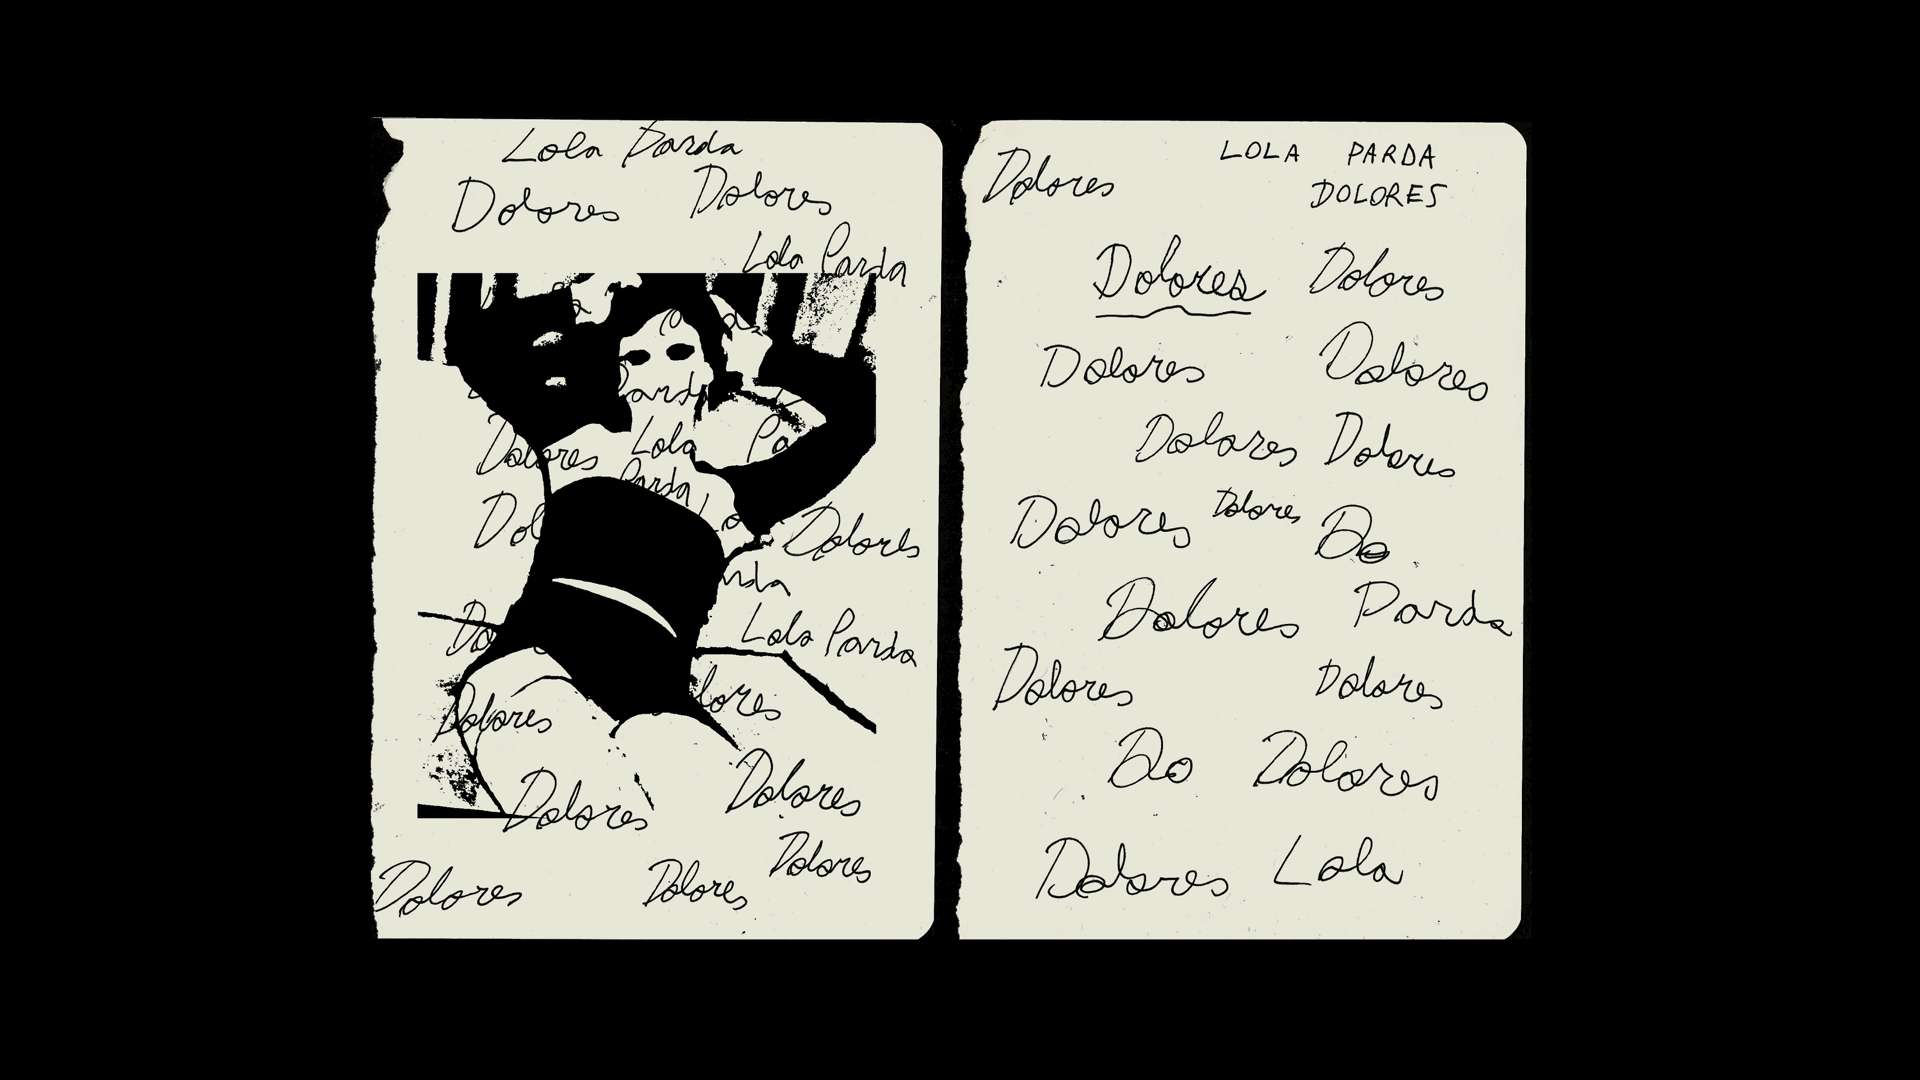 Lola Parda
Dolores Dolores
Lola Parda
Parda
Dolores Lola Pa
Parda
Dol Lo Dolores
rda
Do Lola Parda
Dolores lores
Dolores Dolores
Dolores Dolores Dolores
Dolores LOLA PARDA
DOLORES
Dolores Dolores
Dolores Dolores
Dolores Dolores
Dolores Dolores Do
Dolores Parda
Dolores Dolores
Do Dolores
Dolores Lola